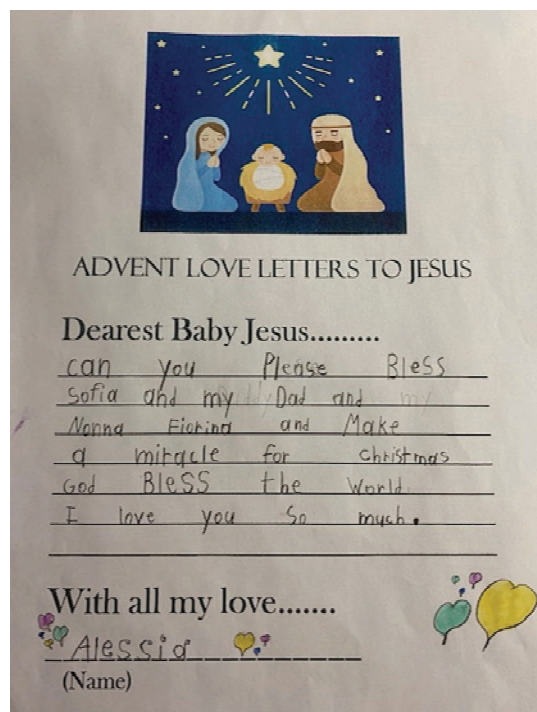 ADVENT LOVE LETTERS TO JESUS
Dearest Baby Jesus.........
can you Please Bless
Sofia and my Dad and my
Nonna Fiorina and Make
a miracle for christmas
God BleSS the World.
I love you So much.
With all my love.......
Alessia
(Name)